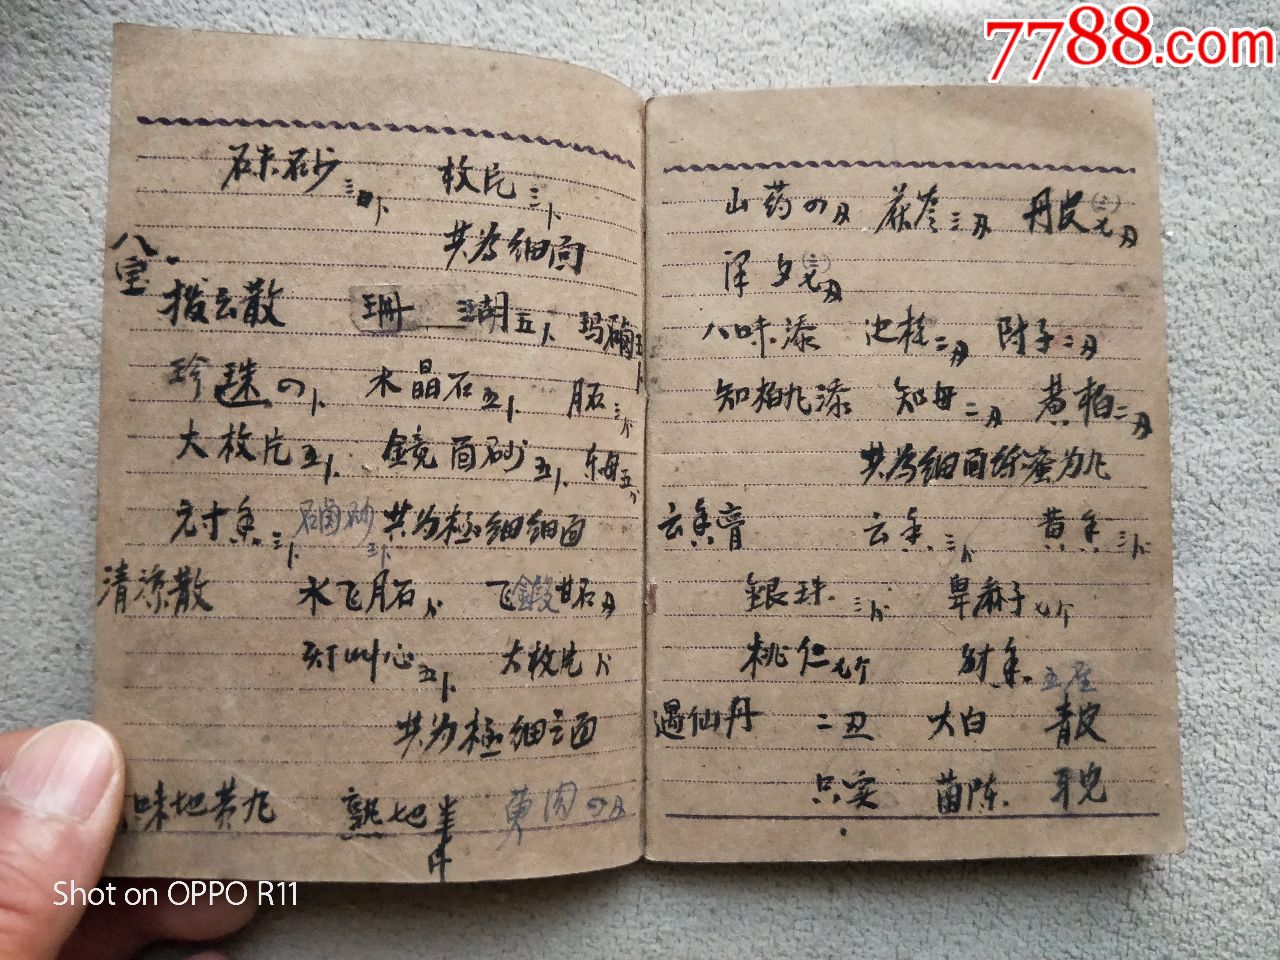 7788.com
硃砂三卜 枚片三卜
共为细面
八宝
拨云散 珊 瑚五卜 玛瑙
珍珠の卜 水晶石五卜 月石三卜
大枚片五卜 鏡面砂五卜
元寸香三卜 硇砂三卜 共为極细细面
清凉散 水飞月石卜 飞鍛甘石
灯心五卜 大枚片卜
共为極细之面
味地黄丸 熟地半斤 萸肉の
山药の 茯苓三 丹皮
泽夕
八味添 附子二
知柏九添 知母二 黄柏二
共为细面炼蜜为丸
云香膏 云香三卜 黄香三卜
銀珠三卜 萆麻子七个
桃仁七个 射香 五厘
遇仙丹 二丑 大白 青皮
只实 茵陈 牙皂
Shot on OPPO R11